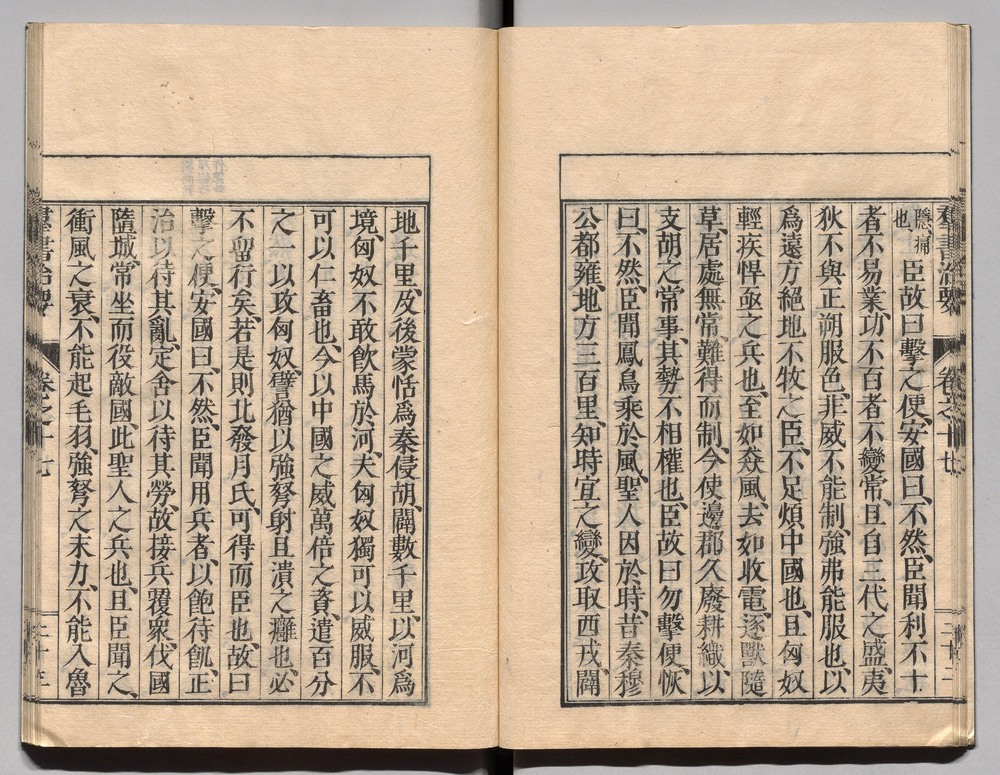 羣書治要 卷之十七 二十二
隱痛也臣故曰擊之便、安國曰、不然、臣聞利不十
者不易業、功不百者不變常、且自三代之盛、夷
狄不與正朔服色、非威不能制、強弗能服也、以
爲遠方絕地不牧之臣、不足煩中國也、且匈奴
輕疾悍亟之兵也、至如猋風、去如收電、逐獸隨
草、居處無常、難得而制、今使邊郡久廢耕織、以
支胡之常事、其勢不相權也、臣故曰勿擊便、恢
曰、不然、臣聞鳳鳥乘於風、聖人因於時、昔秦穆
公都雍、地方三百里、知時宜之變、攻取西戎、闢
地千里、及後蒙恬爲秦侵胡、闢數千里、以河爲
境、匈奴不敢飮馬於河、夫匈奴獨可以威服、不
可以仁畜也、今以中國之威、萬倍之資、遣百分
之一以攻匈奴、譬猶以強弩射且潰之癰也、必
不留行矣、若是則北發月氏、可得而臣也、故曰
擊之便、安國曰、不然、臣聞用兵者、以飽待飢、正
治以待其亂、定舍以待其勞、故接兵覆衆、伐國
隳城、常坐而役敵國、此聖人之兵也、且臣聞之、
衝風之衰、不能起毛羽、強弩之末力、不能入魯
羣書治要 卷之十七 二十三